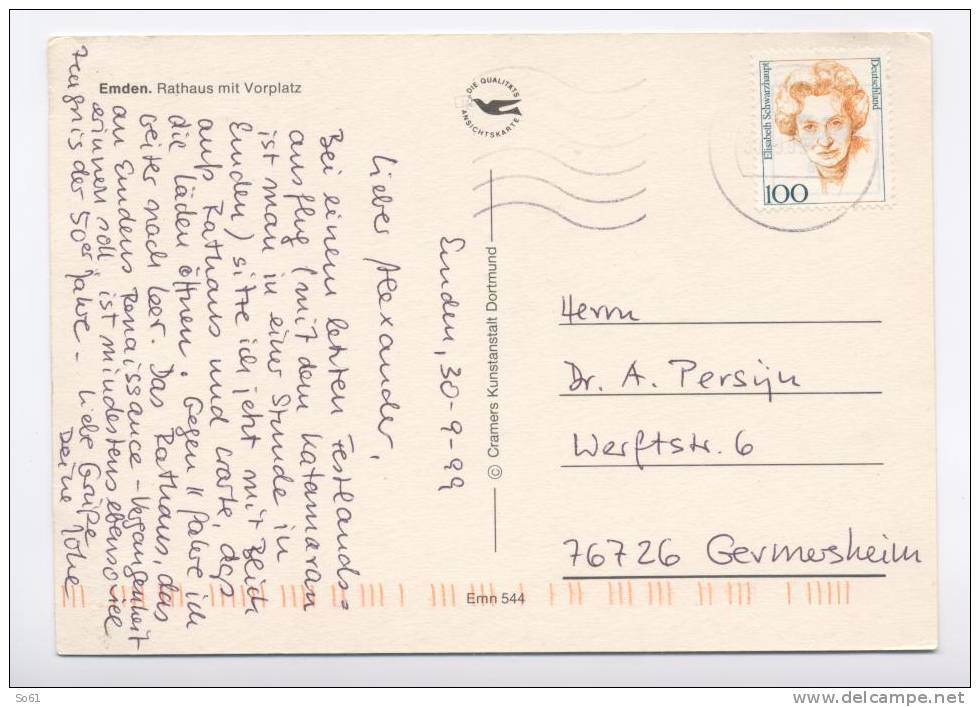 Emden. Rathaus mit Vorplatz
DIE QUALITÄTS
ANSICHTSKARTE
Elisabeth Schwarzhaupt
Deutschland
100
Emden, 30-9-99
Lieber Alexander,
Bei einem letzten Festlands
ausflug (mit dem Katamaran
ist man in einer Stunde in
Emden) sitze ich jetzt mit Blick
aufs Rathaus und warte, daß
die Läden öffnen. Gegen 11 fahre ich
weiter nach Leer. Das Rathaus, das
an Emdens Renaissance-Vergangenheit
erinnern soll, ist mindestens ebensowie
Zeugnis der 50er Jahre. Liebe Grüße
Deine
© Cramers Kunstanstalt Dortmund
Herrn
Dr. A. Persijn
Werftstr. 6
76726 Germersheim
Emn 544
So61
www.delcampe.net